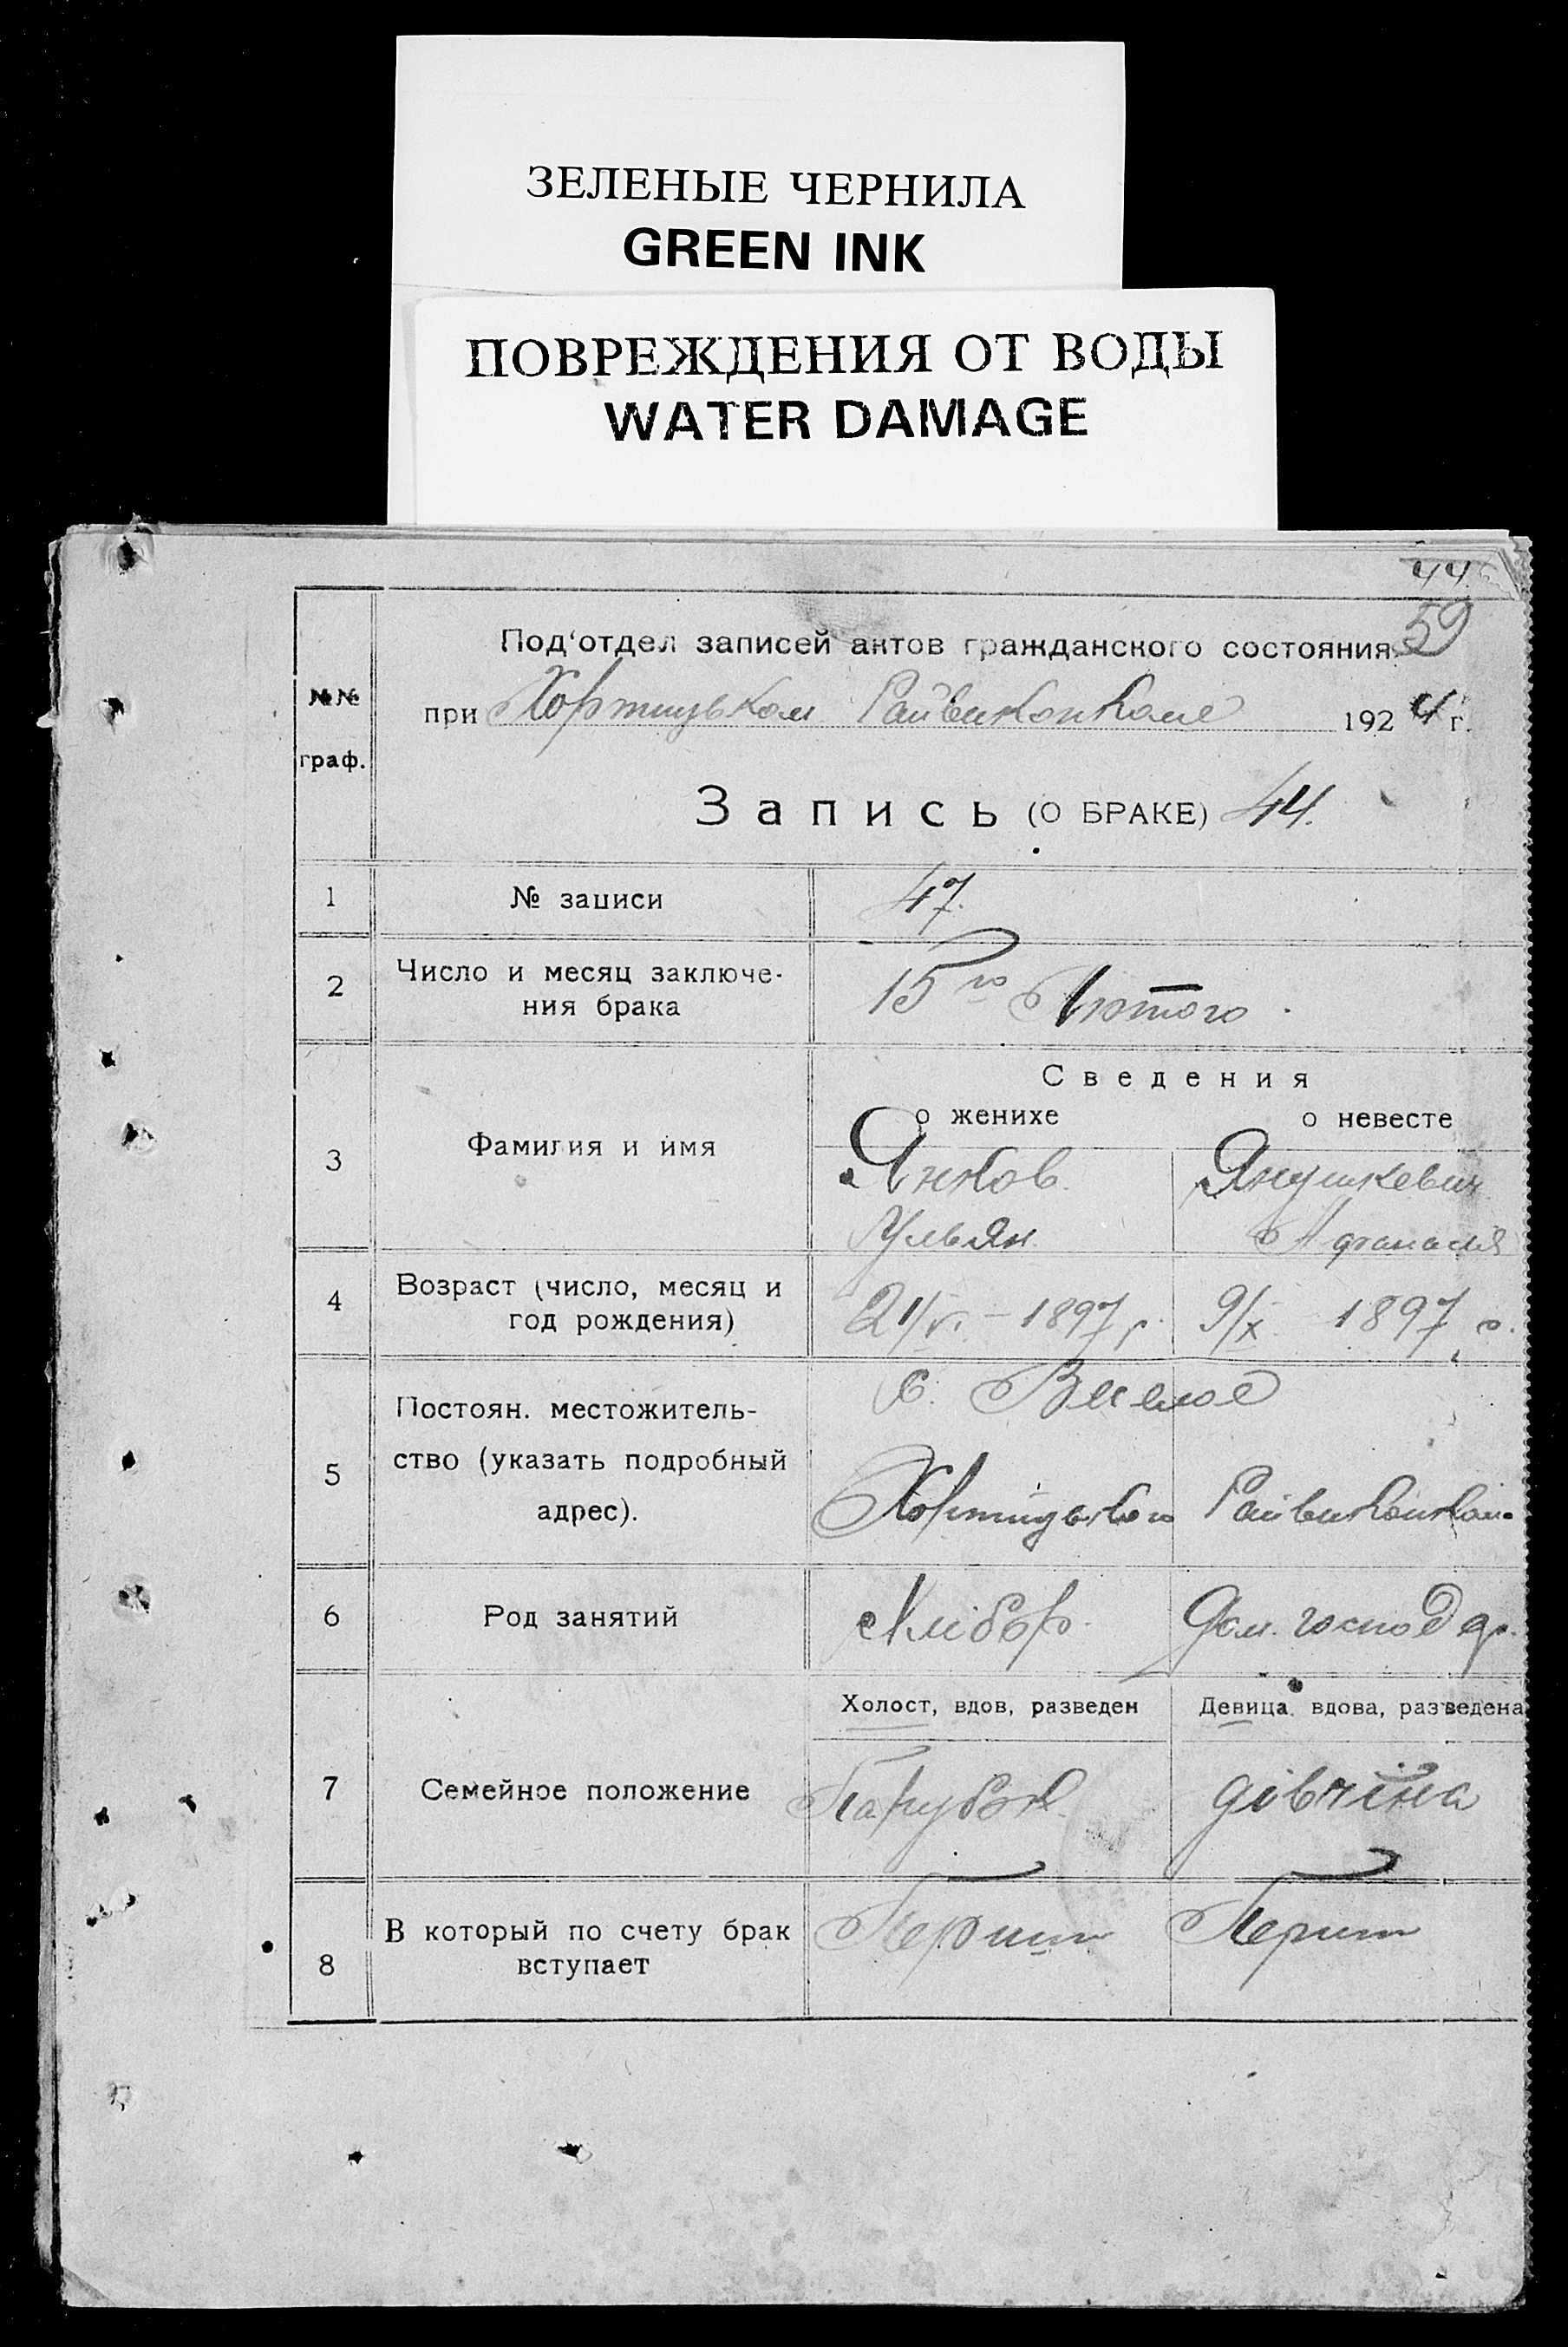 ЗЕЛЕНЫЕ ЧЕРНИЛА
GREEN INK
ПОВРЕЖДЕНИЯ ОТ ВОДЫ
WATER DAMAGE
44
59
Под'отдел записей актов гражданского состояния
№№ граф.
при Хортицьком Райвиконкоме 1924 г.
Запись (О БРАКЕ) 44.
1 № записи 47.
2 Число и месяц заключе-
ния брака 15го Лютого
Сведения
о женихе о невесте
3 Фамилия и имя Янков Янушкевич
Ульян Афанасия
4 Возраст (число, месяц и
год рождения) 21/VI - 1897 г. 9/X 1897 г.
5 Постоян. местожитель-
ство (указать подробный
адрес).
с.
Хортицького Райвиконком.
6 Род занятий Хлібор. Дом. господар.
Холост, вдов, разведен Девица, вдова, разведена
7 Семейное положение Парубок дівчина
8 В который по счету брак
вступает Перший Перший